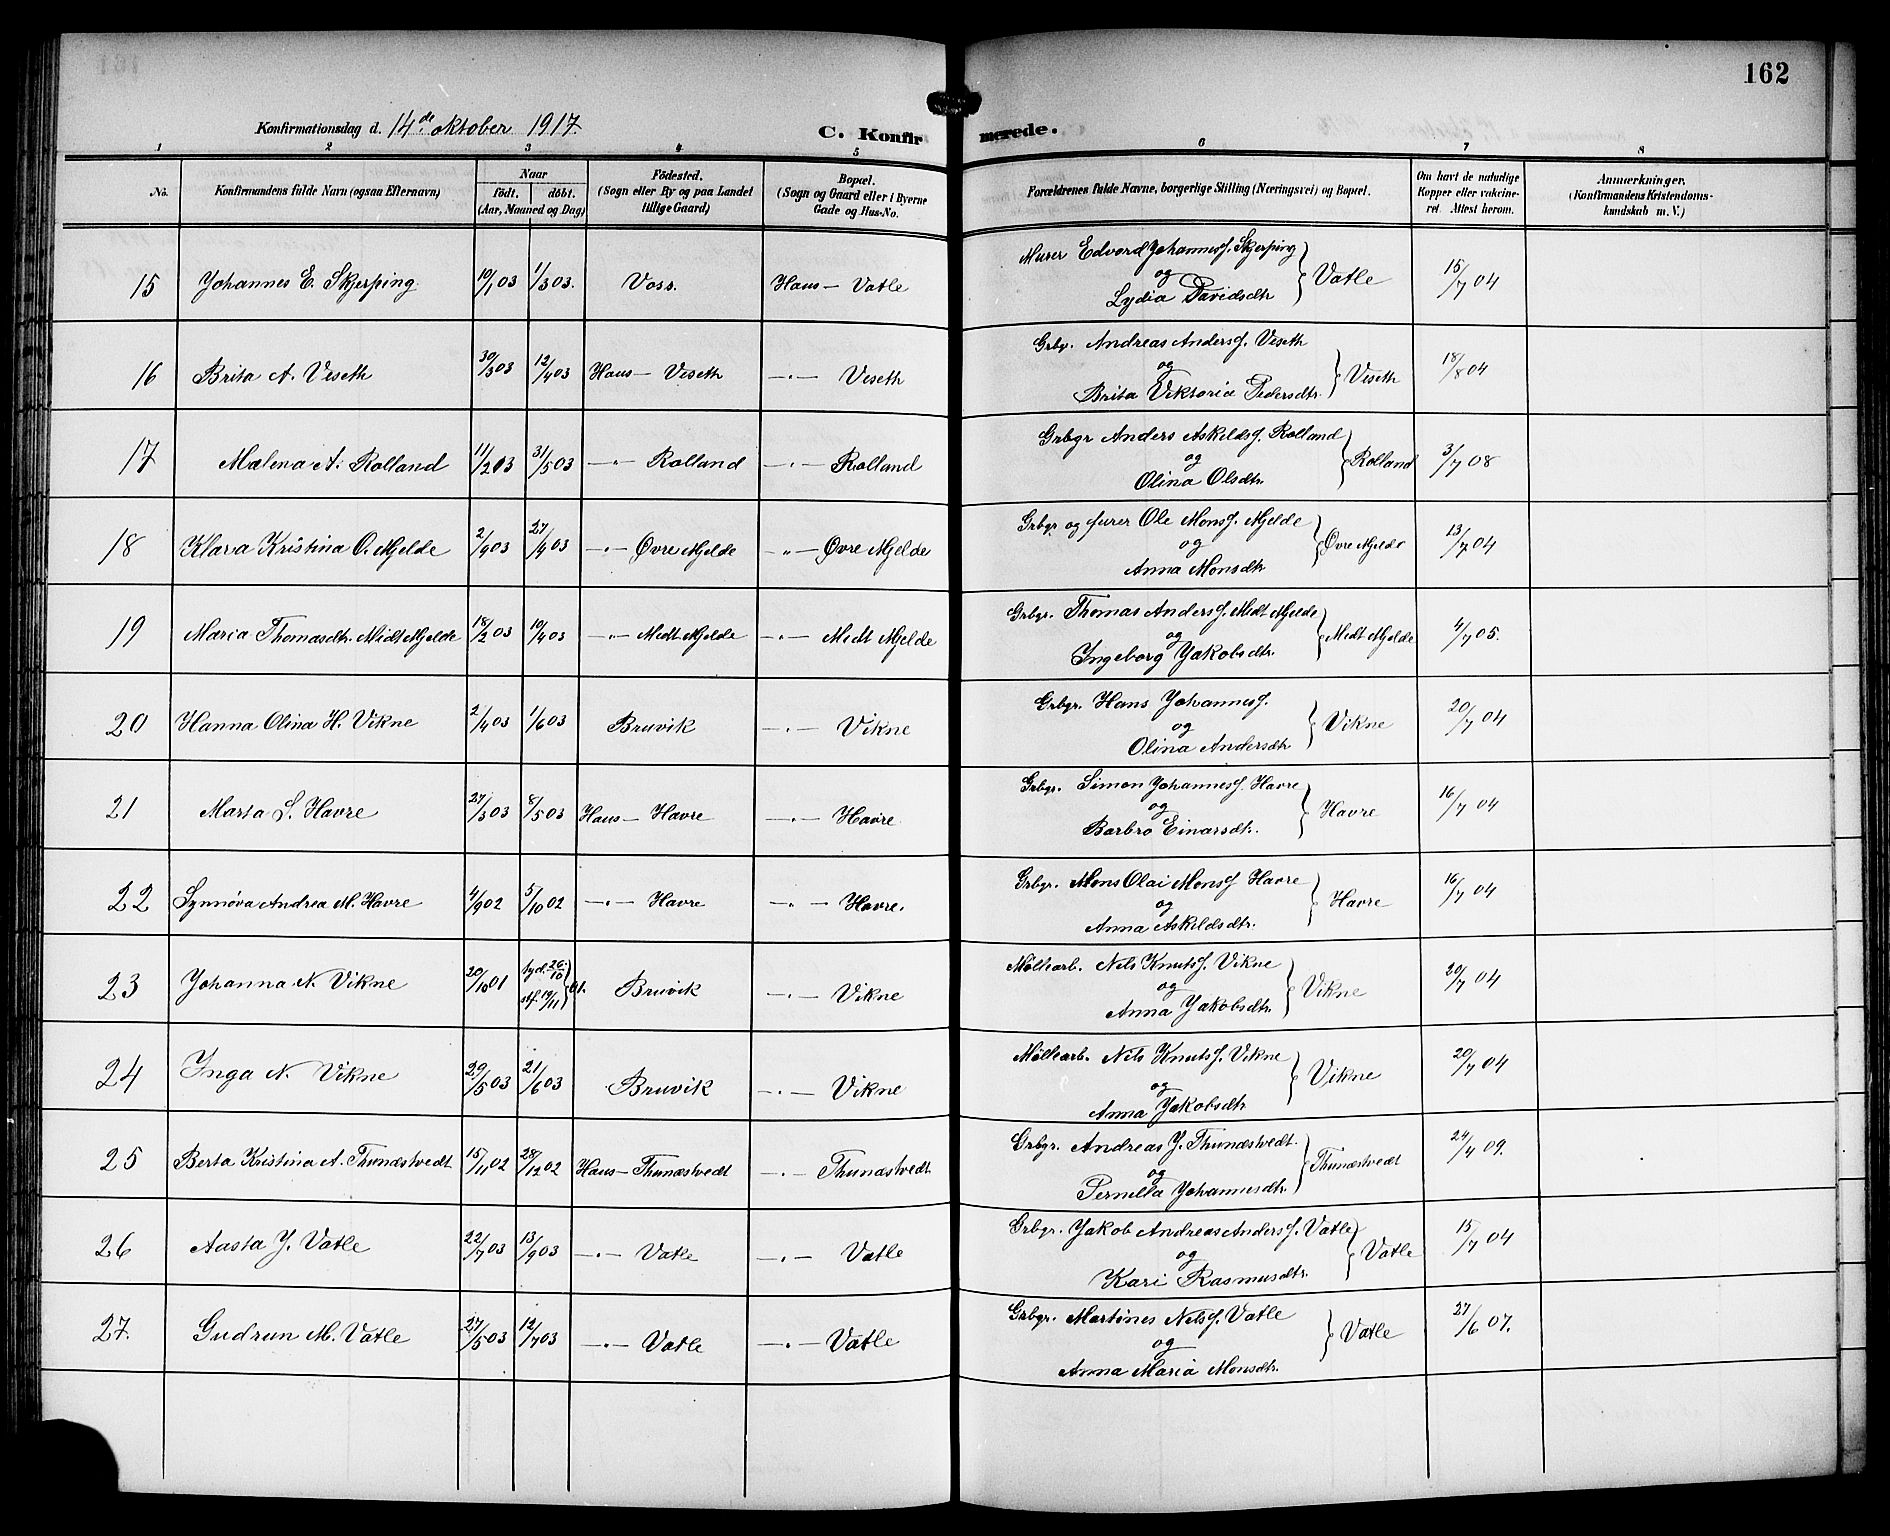 162
Konfirmationsdag d. 14de oktober 1917.
C. Konfirmerede.
1 2 3 4 5 6 7 8
No.
Konfirmandens fulde Navn (ogsaa Efternavn)
Naar
födt. döbt.
(Aar, Maaned og Dag)
Födested.
(Sogn eller By og paa Landet
tillige Gaard)
Bopæl.
(Sogn og Gaard eller i Byerne
Gade og Hus-No.
Forældrenes fulde Navne, borgerlige Stilling (Næringsvei) og Bopæl.
Om havt de naturlige
Kopper eller vakcine-
ret. Attest herom.
Anmærkninger.
(Konfirmandens Kristendoms-
kundskab m. V.)
15 Johannes E. Skjerping 10/1 03 1/3 03. Voss. Haus — Vatle
Murer Edvard Johannesf. Skjerping
og } Vatle 15/7 04
Lydia Davidsdtr
16 Brita A. Veseth 30/3 03 12/4 03 Haus — Veseth —〃— Veseth
Grbr. Andreas Andersf. Veseth
og } Veseth 18/8 04
Brita Viktoria Pedersdtr.
17 Malena A. Rolland 11/2 03 31/5 03 —〃— Rolland —〃— Rolland
Grbgr Anders Askildsf. Rolland
og } Rolland 3/7 08
Olina Olsdtr.
18 Klara Kristina O. Mjelde 2/9 03 27/9 03 —〃— Øvre Mjelde —〃— Øvre Mjelde
Grbgr og furer Ole Monsf. Mjelde
og } Øvre Mjelde 13/7 04
Anna Monsdtr.
19 Maria Thomasdtr. Midt Mjelde 18/2 03 10/4 03 —〃— Midt Mjelde —〃— Midt Mjelde
Grbgr. Thomas Andersf. Midt Mjelde
og } Midt Mjelde 4/7 05.
Ingeborg Jakobsdtr.
20 Hanna Olina H. Vikne 2/4 03 1/6 03 Bruvik —〃— Vikne
Grbgr. Hans Johannesf.
og } Vikne 20/7 04
Olina Andersdtr
21 Marta S. Havre 27/3 03 8/5 03 Haus — Havre —〃— Havre.
Grbgr. Simon Johannesf. Havre
og } Havre 16/7 04
Barbro Einarsdtr.
22 Synnøva Andrea M. Havre 4/9 02 5/10 02 —〃— Havre —〃— Havre.
Grbgr. Mons Olai Monsf Havre
og } Havre 16/7 04
Anna Askildsdtr.
23 Johanna N. Vikne 20/10 01 hjd. 26/10 stf. 19/11 } 01. Bruvik —〃— Vikne
Møllearb. Nils Knutsf. Vikne
og } Vikne 20/7 04
Anna Jakobsdtr.
24 Inga N. Vikne 29/5 03 21/6 03 Bruvik —〃— Vikne
Møllearb. Nils Knutsf. Vikne
og } Vikne 20/7 04
Anna Jakobsdtr
25 Berta Kristina A. Thunestvedt 15/11 02 28/12 02 Haus — Thunestvedt —〃— Thunestvedt
Grbgr. Andreas J. Thunestvedt.
og } Thunestvedt 24/4 09.
Pernilla Johannesdtr.
26 Aasta J. Vatle 22/7 03 13/9 03 —〃— Vatle —〃— Vatle
Grbgr. Jakob Andreas Andersf. Vatle
og } Vatle 15/7 04
Kari Rasmusdtr.
27. Gudrun M. Vatle 27/5 03 12/7 03 —〃— Vatle —〃— Vatle
Grbgr. Martines Nilsf. Vatle
og } Vatle 27/6 07.
Anna Maria Monsdtr.